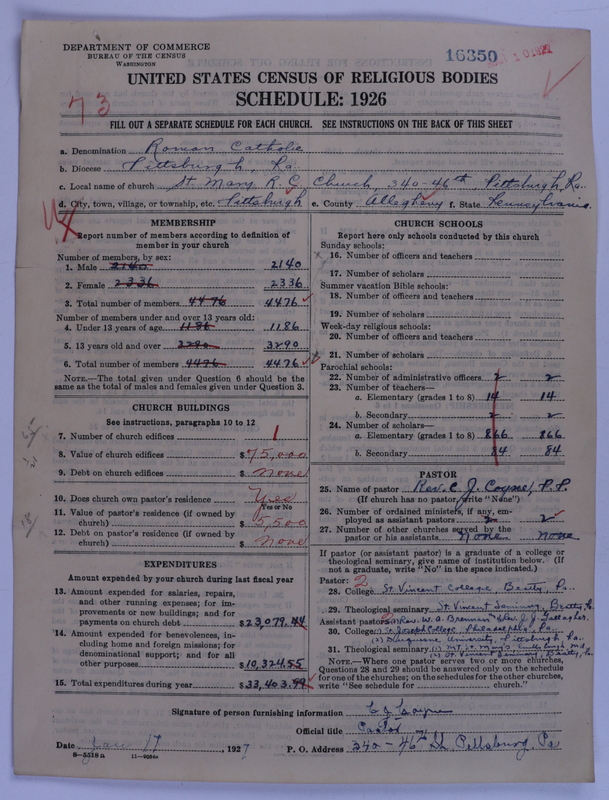 DEPARTMENT OF COMMERCE
BUREAU OF THE CENSUS
WASHINGTON
16350
UNITED STATES CENSUS OF RELIGIOUS BODIES
73
SCHEDULE: 1926
FILL OUT A SEPARATE SCHEDULE FOR EACH CHURCH. SEE INSTRUCTIONS ON THE BACK OF THIS SHEET
a. Denomination Roman Catholic
b. Diocese Pittsburgh, Pa.
c. Local name of church St. Mary R.C. Church, 340-46th Pittsburgh, Pa.
d. City, town, village, or township, etc. Pittsburgh e. County Allegheny f. State Pennsylvania
MEMBERSHIP
Report number of members according to definition of
member in your church
Number of members, by sex:
1. Male 2140 2140
2. Female 2336 2336
3. Total number of members 4476 4476
Number of members under and over 13 years old:
4. Under 13 years of age 1186 1186
5. 13 years old and over 3290 3290
6. Total number of members 4476 4476
NOTE.—The total given under Question 6 should be the
same as the total of males and females given under Question 3.
CHURCH BUILDINGS
See instructions, paragraphs 10 to 12
7. Number of church edifices 1
8. Value of church edifices $75,000
9. Debt on church edifices $ None
10. Does church own pastor's residence Yes
Yes or No
11. Value of pastor's residence (if owned by
church) $ 5,500
12. Debt on pastor's residence (if owned by
church) $ None
EXPENDITURES
Amount expended by your church during last fiscal year
13. Amount expended for salaries, repairs,
and other running expenses; for im-
provements or new buildings; and for
payments on church debt $23,079.44
14. Amount expended for benevolences, in-
cluding home and foreign missions; for
denominational support; and for all
other purposes $10,324.55
15. Total expenditures during year $33,403.99
CHURCH SCHOOLS
Report here only schools conducted by this church
Sunday schools:
16. Number of officers and teachers
17. Number of scholars
Summer vacation Bible schools:
18. Number of officers and teachers
19. Number of scholars
Week-day religious schools:
20. Number of officers and teachers
21. Number of scholars
Parochial schools:
22. Number of administrative officers 2 2
23. Number of teachers—
a. Elementary (grades 1 to 8) 14 14
b. Secondary 2 2
24. Number of scholars—
a. Elementary (grades 1 to 8) 866 866
b. Secondary 84 84
PASTOR
25. Name of pastor Rev. C. J. Coyne, P.P.
(If church has no pastor, write "None")
26. Number of ordained ministers, if any, em-
ployed as assistant pastors 2 2
27. Number of other churches served by the
pastor or his assistants None None
If pastor (or assistant pastor) is a graduate of a college or
theological seminary, give name of institution below. (If
not a graduate, write "No" in the space indicated.)
Pastor: 2
28. College St. Vincent College Beatty Pa.
29. Theological seminary St. Vincent Seminary, Beatty, Pa.
Assistant pastor: Rev. W. A. Brennan Rev. J. J. Gallagher.
30. College (1) St. Joseph College, Philadelphia, Pa.
(2) Duquesne University, Pittsburgh Pa.
31. Theological seminary (1) Mt. St. Mary's, Md
(2) St. Vincent Seminary Beatty, Pa.
NOTE.—Where one pastor serves two or more churches,
Questions 28 and 29 should be answered only on the schedule
for one of the churches; on the schedules for the other churches,
write "See schedule for church."
Signature of person furnishing information C J Coyne
Official title Pastor
Date Jan 17, 1927 P. O. Address 340-46th St. Pittsburg, Pa
8—5518 a 11—9084